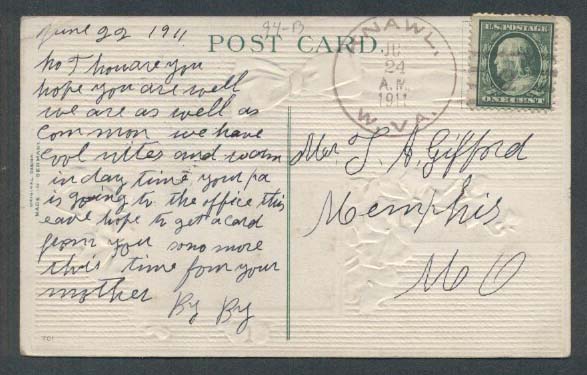 June 22 1911
94-B
POST CARD.
NAWL,
JU
24
A.M.
1911
W. VA.
U.S. POSTAGE
ONE CENT
ho T houare you
hope you are well
we are as well as
Common we have
Cool nites and warm
in day time your pa
is going to the office this
eave hope to get a card
from you so no more
this time fom your
mother
By By
Mr T. A. Gifford
Memphis
MO
MADE IN GERMANY
701